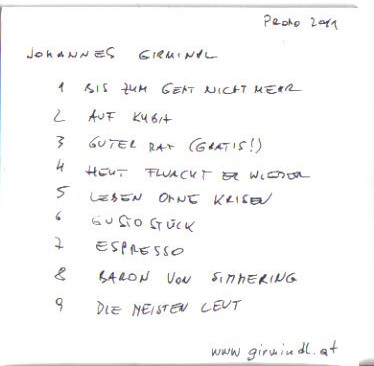 PROMO 2011
JOHANNES GIRMINDL
1 BIS ZUM GEHT NICHT MEHR
2 AUF KUBA
3 GUTER RAT (GRATIS!)
4 HEUT FLUCHT ER WIEDER
5 LEBEN OHNE KRISEN
6 GUSTOSTÜCK
7 ESPRESSO
8 BARON VON SIMMERING
9 DIE MEISTEN LEUT
www.girmindl.at